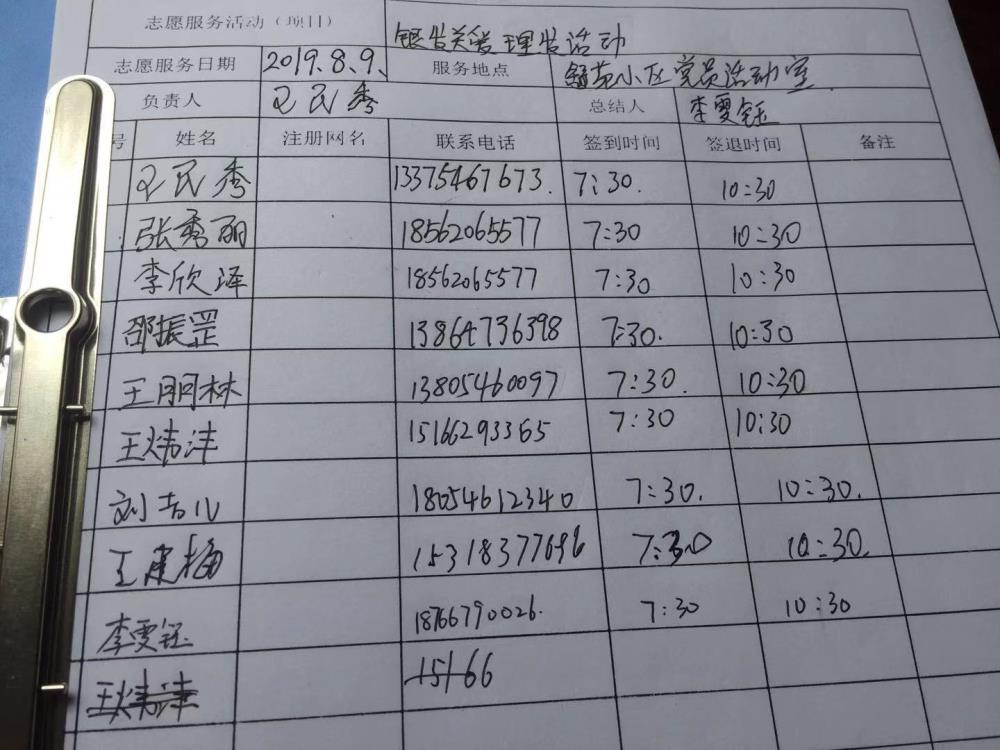 志愿服务活动（项目） 银发关爱理发活动
志愿服务日期 2019.8.9、 服务地点 小区党员活动室
负责人 王民秀 总结人 李雯钰
号 姓名 注册网名 联系电话 签到时间 签退时间 备注
王民秀 13375467673. 7:30. 10:30
张秀丽 18562065577 7:30 10:30
李欣泽 18562065577 7:30 10:30
邵振罡 13864736398 7:30. 10:30
王朋林 13805460097 7:30. 10:30
王炜沣 15166293365 7:30 10:30
刘吉儿 18054612340 7:30. 10:30.
王建梅 15318377696 7:30 10:30.
李雯钰 18766790026. 7:30 10:30
王炜沣 15166